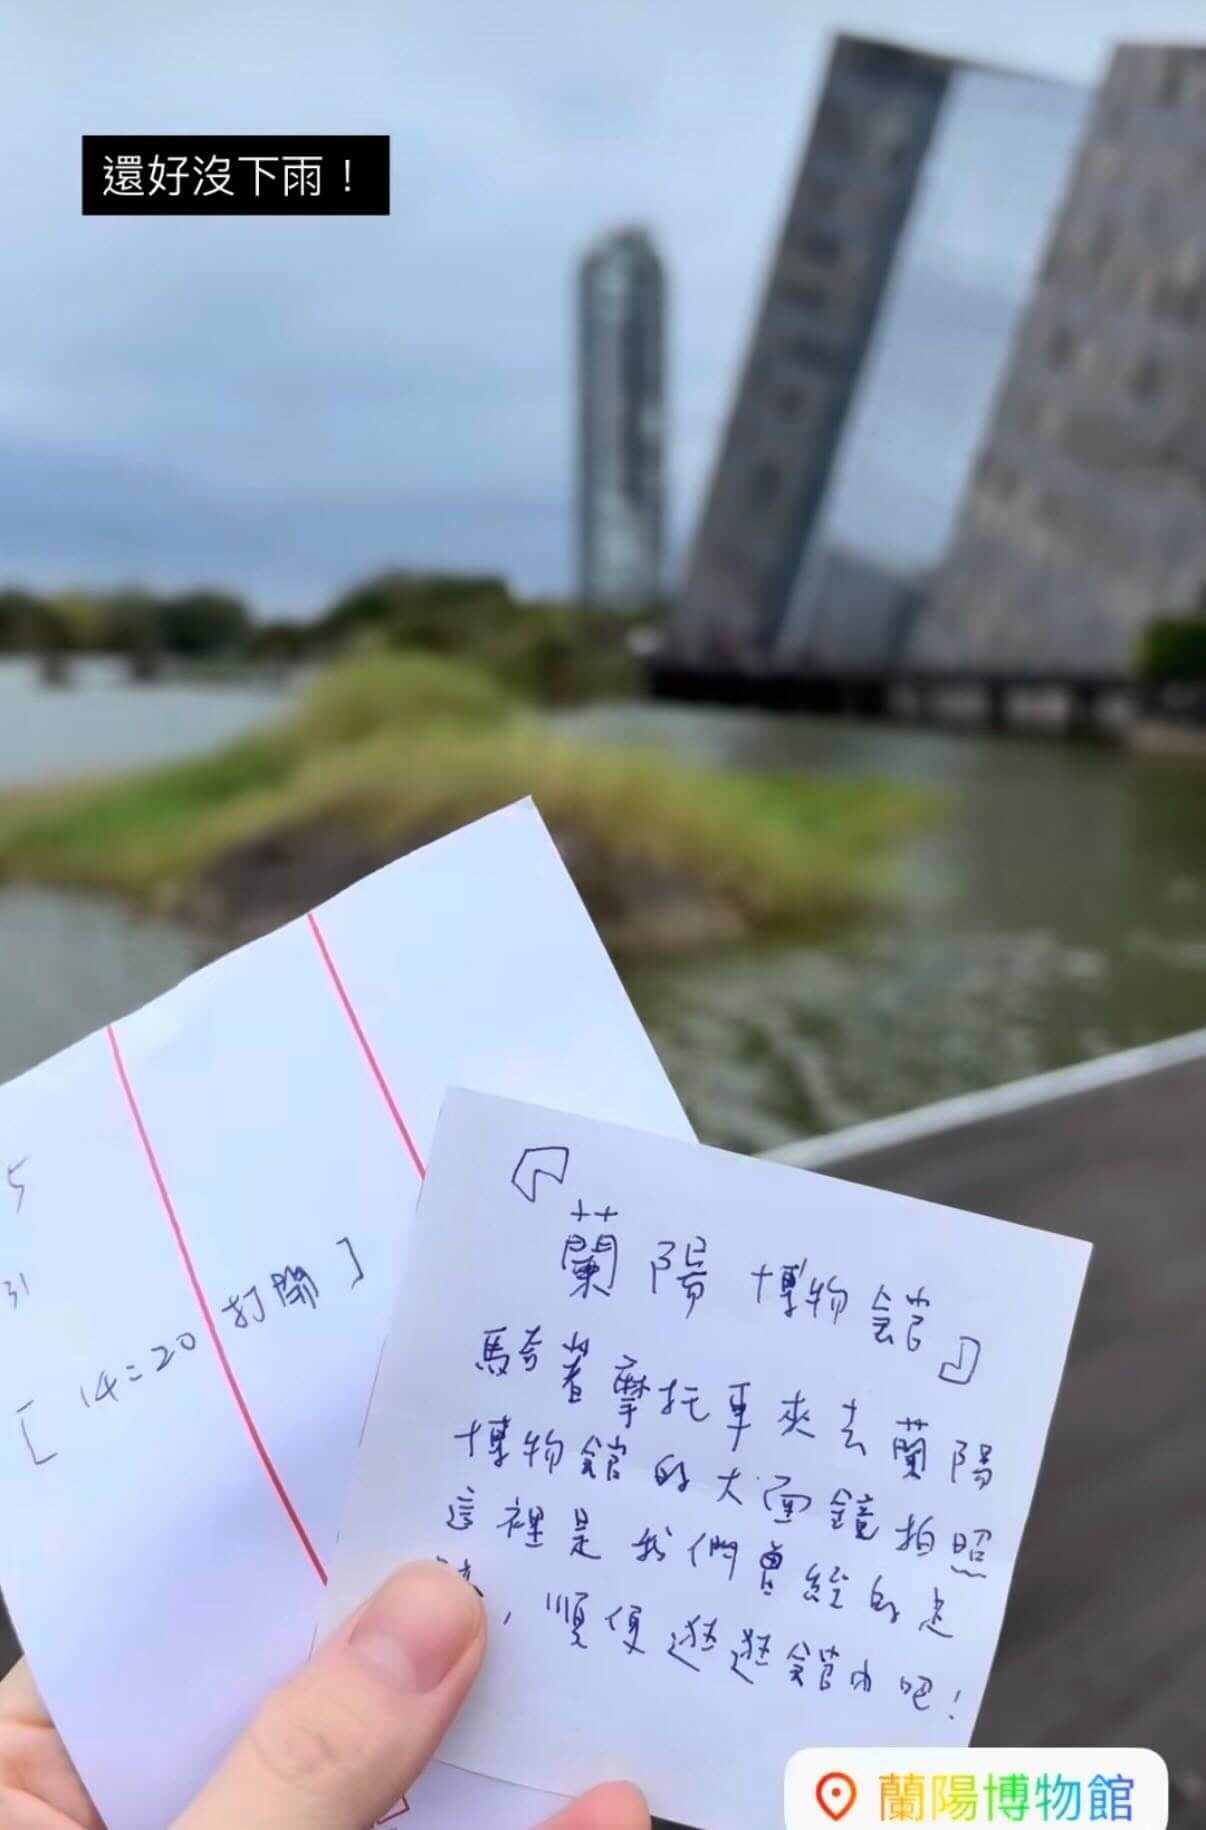 還好沒下雨！
5
31
[ 14:20 打開 ]
『蘭陽博物館』
騎著摩托車來去蘭陽
博物館的大面鏡拍照
這裡是我們曾經的走
，順便逛逛館內吧！
蘭陽博物館